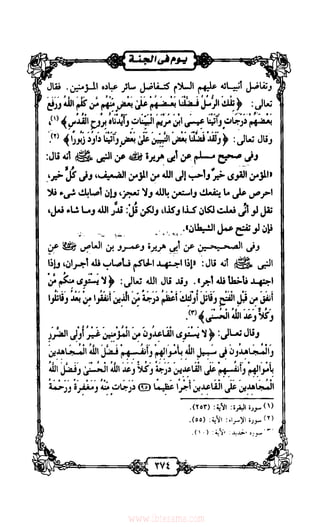 يوم فى الجنة
وتفاضل أنبيائه عليهم السلام كتفاضل سائر عباده المؤمنين. فقال
تعالى: ﴿تِلْكَ الرُّسُلُ فَضَّلْنَا بَعْضَهُمْ عَلَىٰ بَعْضٍ مِّنْهُم مَّن كَلَّمَ اللَّهُ وَرَفَعَ
بَعْضَهُمْ دَرَجَاتٍ وَآتَيْنَا عِيسَى ابْنَ مَرْيَمَ الْبَيِّنَاتِ وَأَيَّدْنَاهُ بِرُوحِ الْقُدُسِ﴾(١)
وقال تعالى: ﴿وَلَقَدْ فَضَّلْنَا بَعْضَ النَّبِيِّينَ عَلَىٰ بَعْضٍ وَآتَيْنَا دَاوُودَ زَبُورًا﴾(٢).
وفى صحيح مسلم عن أبى هريرة ﷺ عن النبى ﷺ أنه قال:
«المؤمن القوى خير وأحب إلى الله من المؤمن الضعيف، وفى كُلٍّ خير،
احرص على ما ينفعك واستعن بالله ولا تعجز، وإن أصابك شىء فلا
تقل لو أنى فعلت لكان كذا وكذا، ولكن قُل: قدَّر الله وما شاء فعل،
فإن لو تفتح عمل الشيطان».
وفى الصحيحين عن أبى هريرة وعمرو بن العاص عن
النبى ﷺ أنه قال: «إذا اجتهد الحاكم فأصاب فله أجران، وإذا
اجتهد فأخطأ فله أجر». وقد قال الله تعالى: ﴿لا يَسْتَوِي مِنكُم مَّنْ
أَنفَقَ مِن قَبْلِ الْفَتْحِ وَقَاتَلَ أُوْلَئِكَ أَعْظَمُ دَرَجَةً مِّنَ الَّذِينَ أَنفَقُوا مِنْ بَعْدُ وَقَاتَلُوا
وَكُلاًّ وَعَدَ اللَّهُ الْحُسْنَىٰ﴾(٣).
وقال تعالى: ﴿لا يَسْتَوِي الْقَاعِدُونَ مِنَ الْمُؤْمِنِينَ غَيْرُ أُوْلِي الضَّرَرِ
وَالْمُجَاهِدُونَ فِي سَبِيلِ اللَّهِ بِأَمْوَالِهِمْ وَأَنفُسِهِمْ فَضَّلَ اللَّهُ الْمُجَاهِدِينَ
بِأَمْوَالِهِمْ وَأَنفُسِهِمْ عَلَى الْقَاعِدِينَ دَرَجَةً وَكُلاًّ وَعَدَ اللَّهُ الْحُسْنَىٰ وَفَضَّلَ اللَّهُ
الْمُجَاهِدِينَ عَلَى الْقَاعِدِينَ أَجْرًا عَظِيمًا (٩٥) دَرَجَاتٍ مِّنْهُ وَمَغْفِرَةً وَرَحْمَةً
(١) سورة البقرة: الآية: (٢٥٣).
(٢) سورة الإسراء: الآية: (٥٥).
(٣) سورة الحديد: الآية: (١٠).
٣٧٤